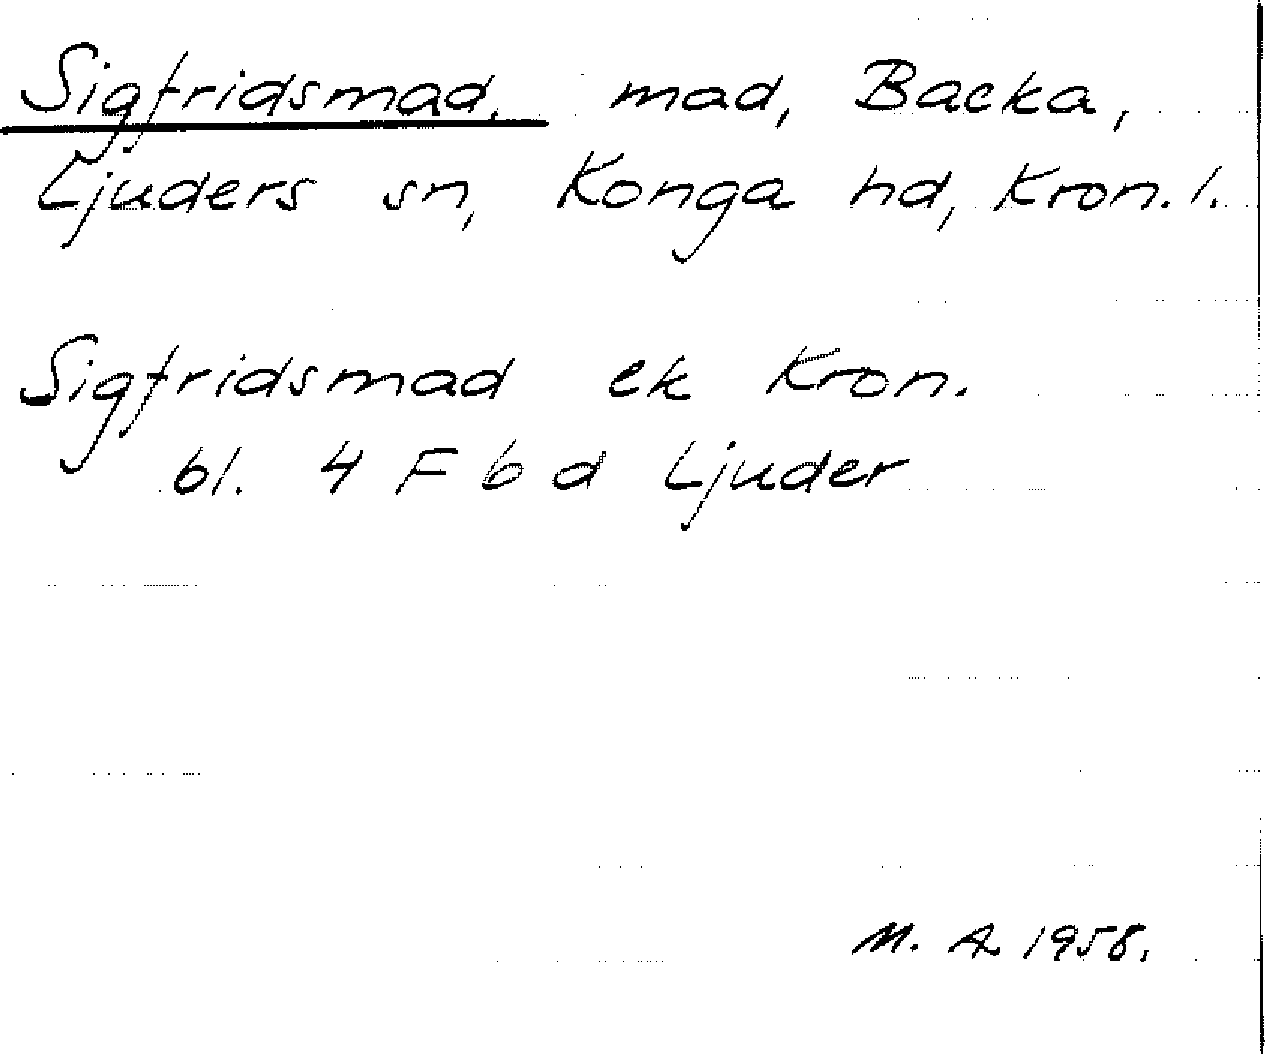 Sigfridsmad, mad, Backa,
Ljuders sn, Konga hd, Kron. l.
Sigfridsmad ek Kron.
bl. 4 F b d Ljuder
M. A 1958.